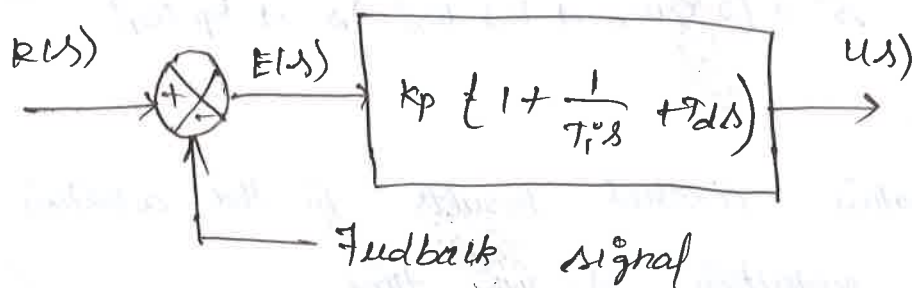 R(s) E(s) U(s)
+ -
Kp (1 + 1/Tis + Tds)
Feedback signal